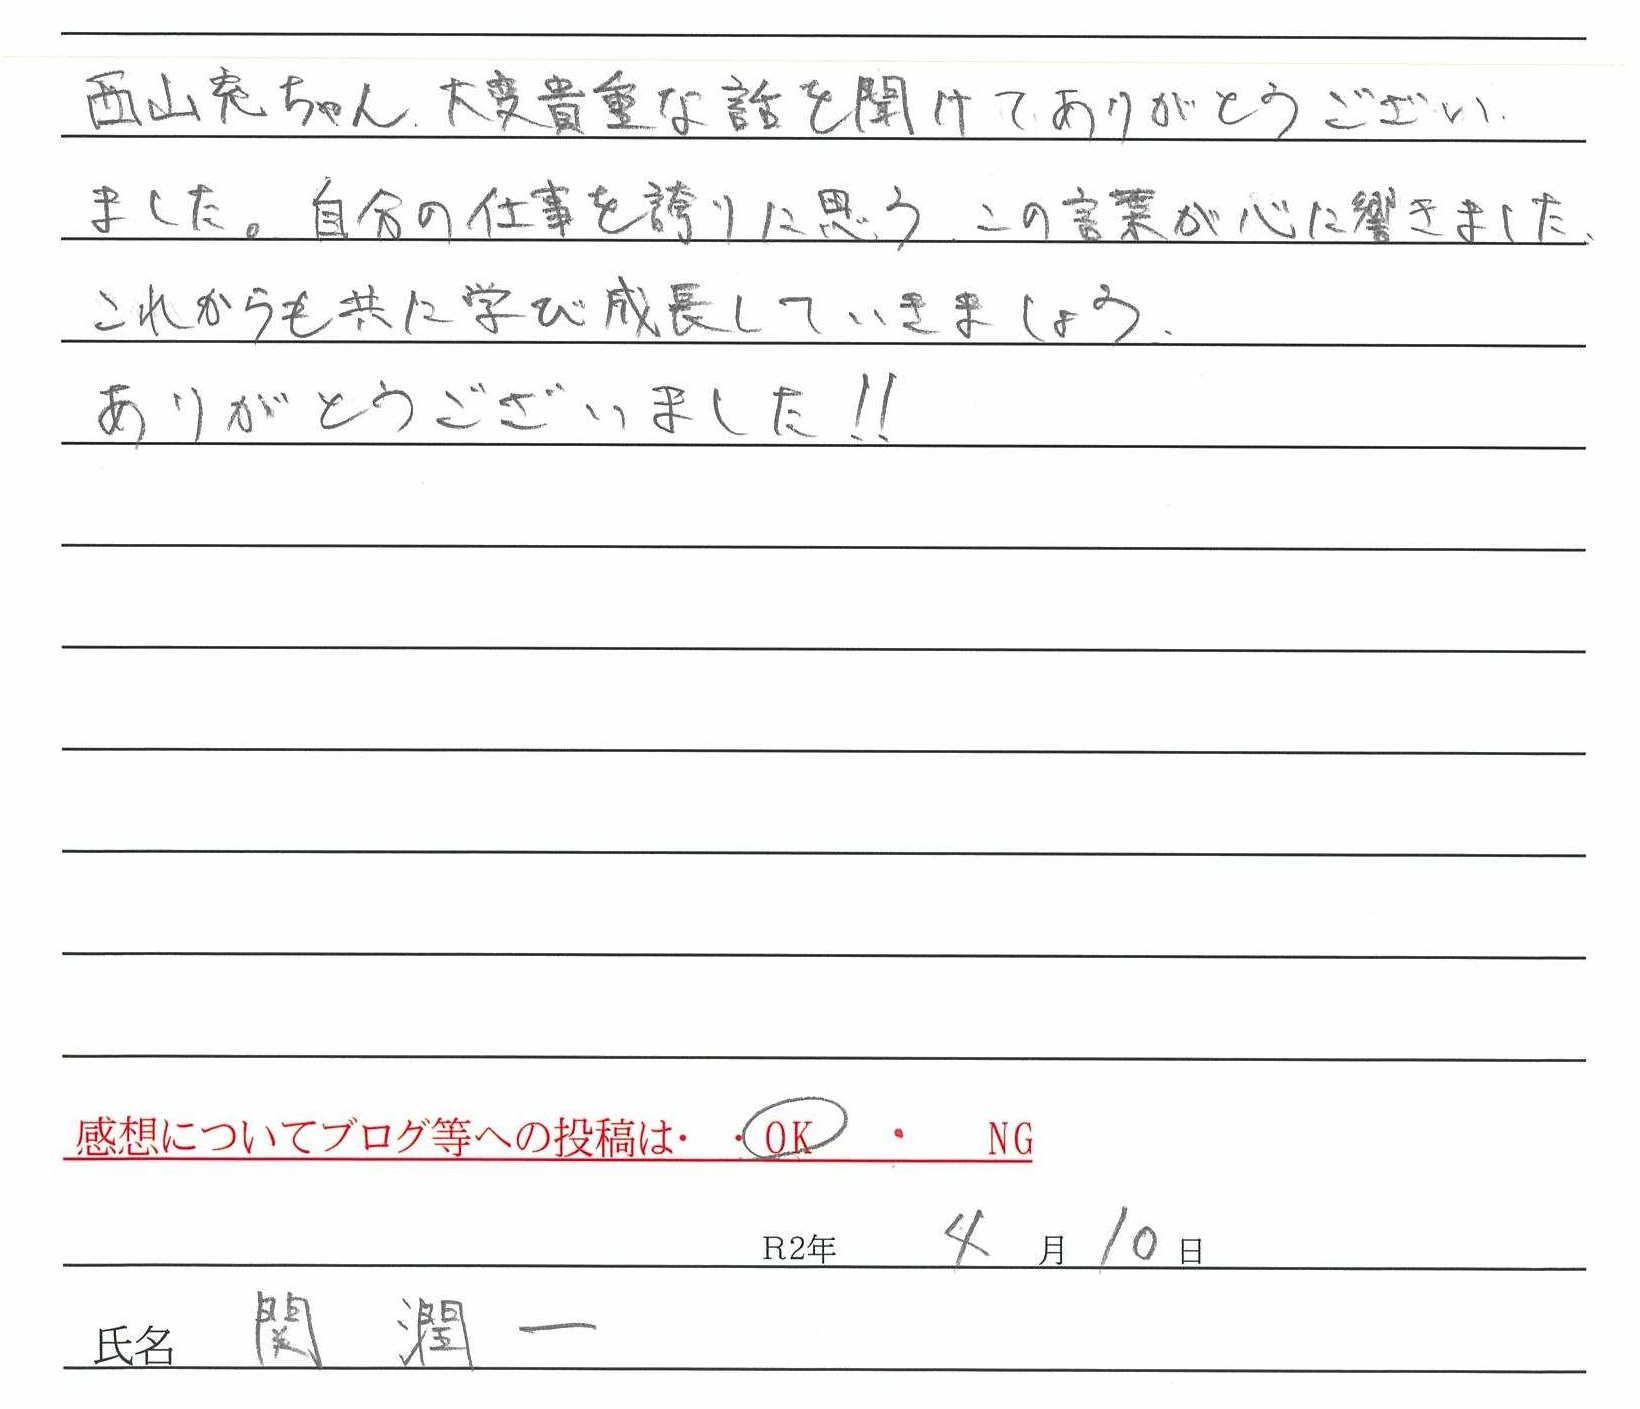 西山充ちゃん、大変貴重な話を聞けてありがとうござい
ました。自分の仕事を誇りに思う この言葉が心に響きました、
これからも共に学び成長していきましょう、
ありがとうございました!!
感想についてブログ等への投稿は・ ・OK ・ NG
R2年 4 月 10 日
氏名 関 潤一